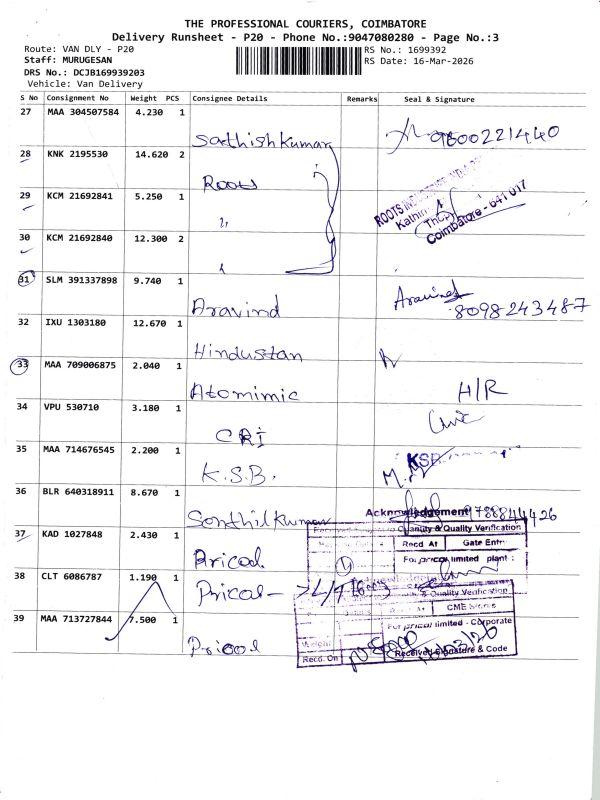 THE PROFESSIONAL COURIERS, COIMBATORE
Delivery Runsheet - P20 - Phone No.:9047080280 - Page No.:3
Route: VAN DLY - P20
RS No.: 1699392
Staff: MURUGESAN
RS Date: 16-Mar-2026
DRS No.: DCJB169939203
Vehicle: Van Delivery
S No Consignment No Weight PCS Consignee Details Remarks Seal & Signature
27 MAA 304507584 4.230 1 Sathishkumar 9600221440
28 KNK 2195530 14.620 2 Roots
ROOTS
29 KCM 21692841 5.250 1 "
Coimbatore - 641 017
30 KCM 21692840 12.300 2
31 SLM 391337898 9.740 1 Aravind Aravind 8098243487
32 IXU 1303180 12.670 1 Hindustan
33 MAA 709006875 2.040 1 Atomimic H/R
34 VPU 530710 3.180 1 CRI
35 MAA 714676545 2.200 1 K.S.B. KSB
36 BLR 640318911 8.670 1 Senthilkumar
Acknowledgement
Quantity & Quality Verification
Recd At Gate Entry
37 KAD 1027848 2.430 1 Pricol
For pricol limited plant :
38 CLT 6086787 1.190 1 Pricol
& Quality Verification
CME Stores
39 MAA 713727844 7.500 1 Pricol
For pricol limited - Corporate
Weight
Recd. On
Received Signature & Code